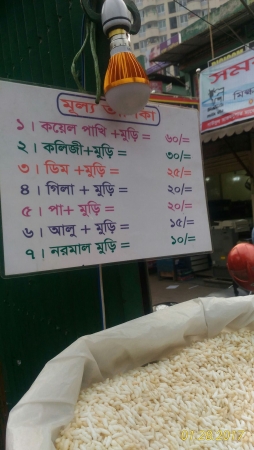 মূল্য তালিকা
১। কয়েল পাখি +মুড়ি = ৬০/=
২। কলিজী+মুড়ি = ৩০/=
৩। ডিম +মুড়ি = ২৫/=
৪। গিলা + মুড়ি = ২০/=
৫। পা+ মুড়ি = ২০/=
৬। আলু + মুড়ি = ১৫/=
৭। নরমাল মুড়ি = ১০/=